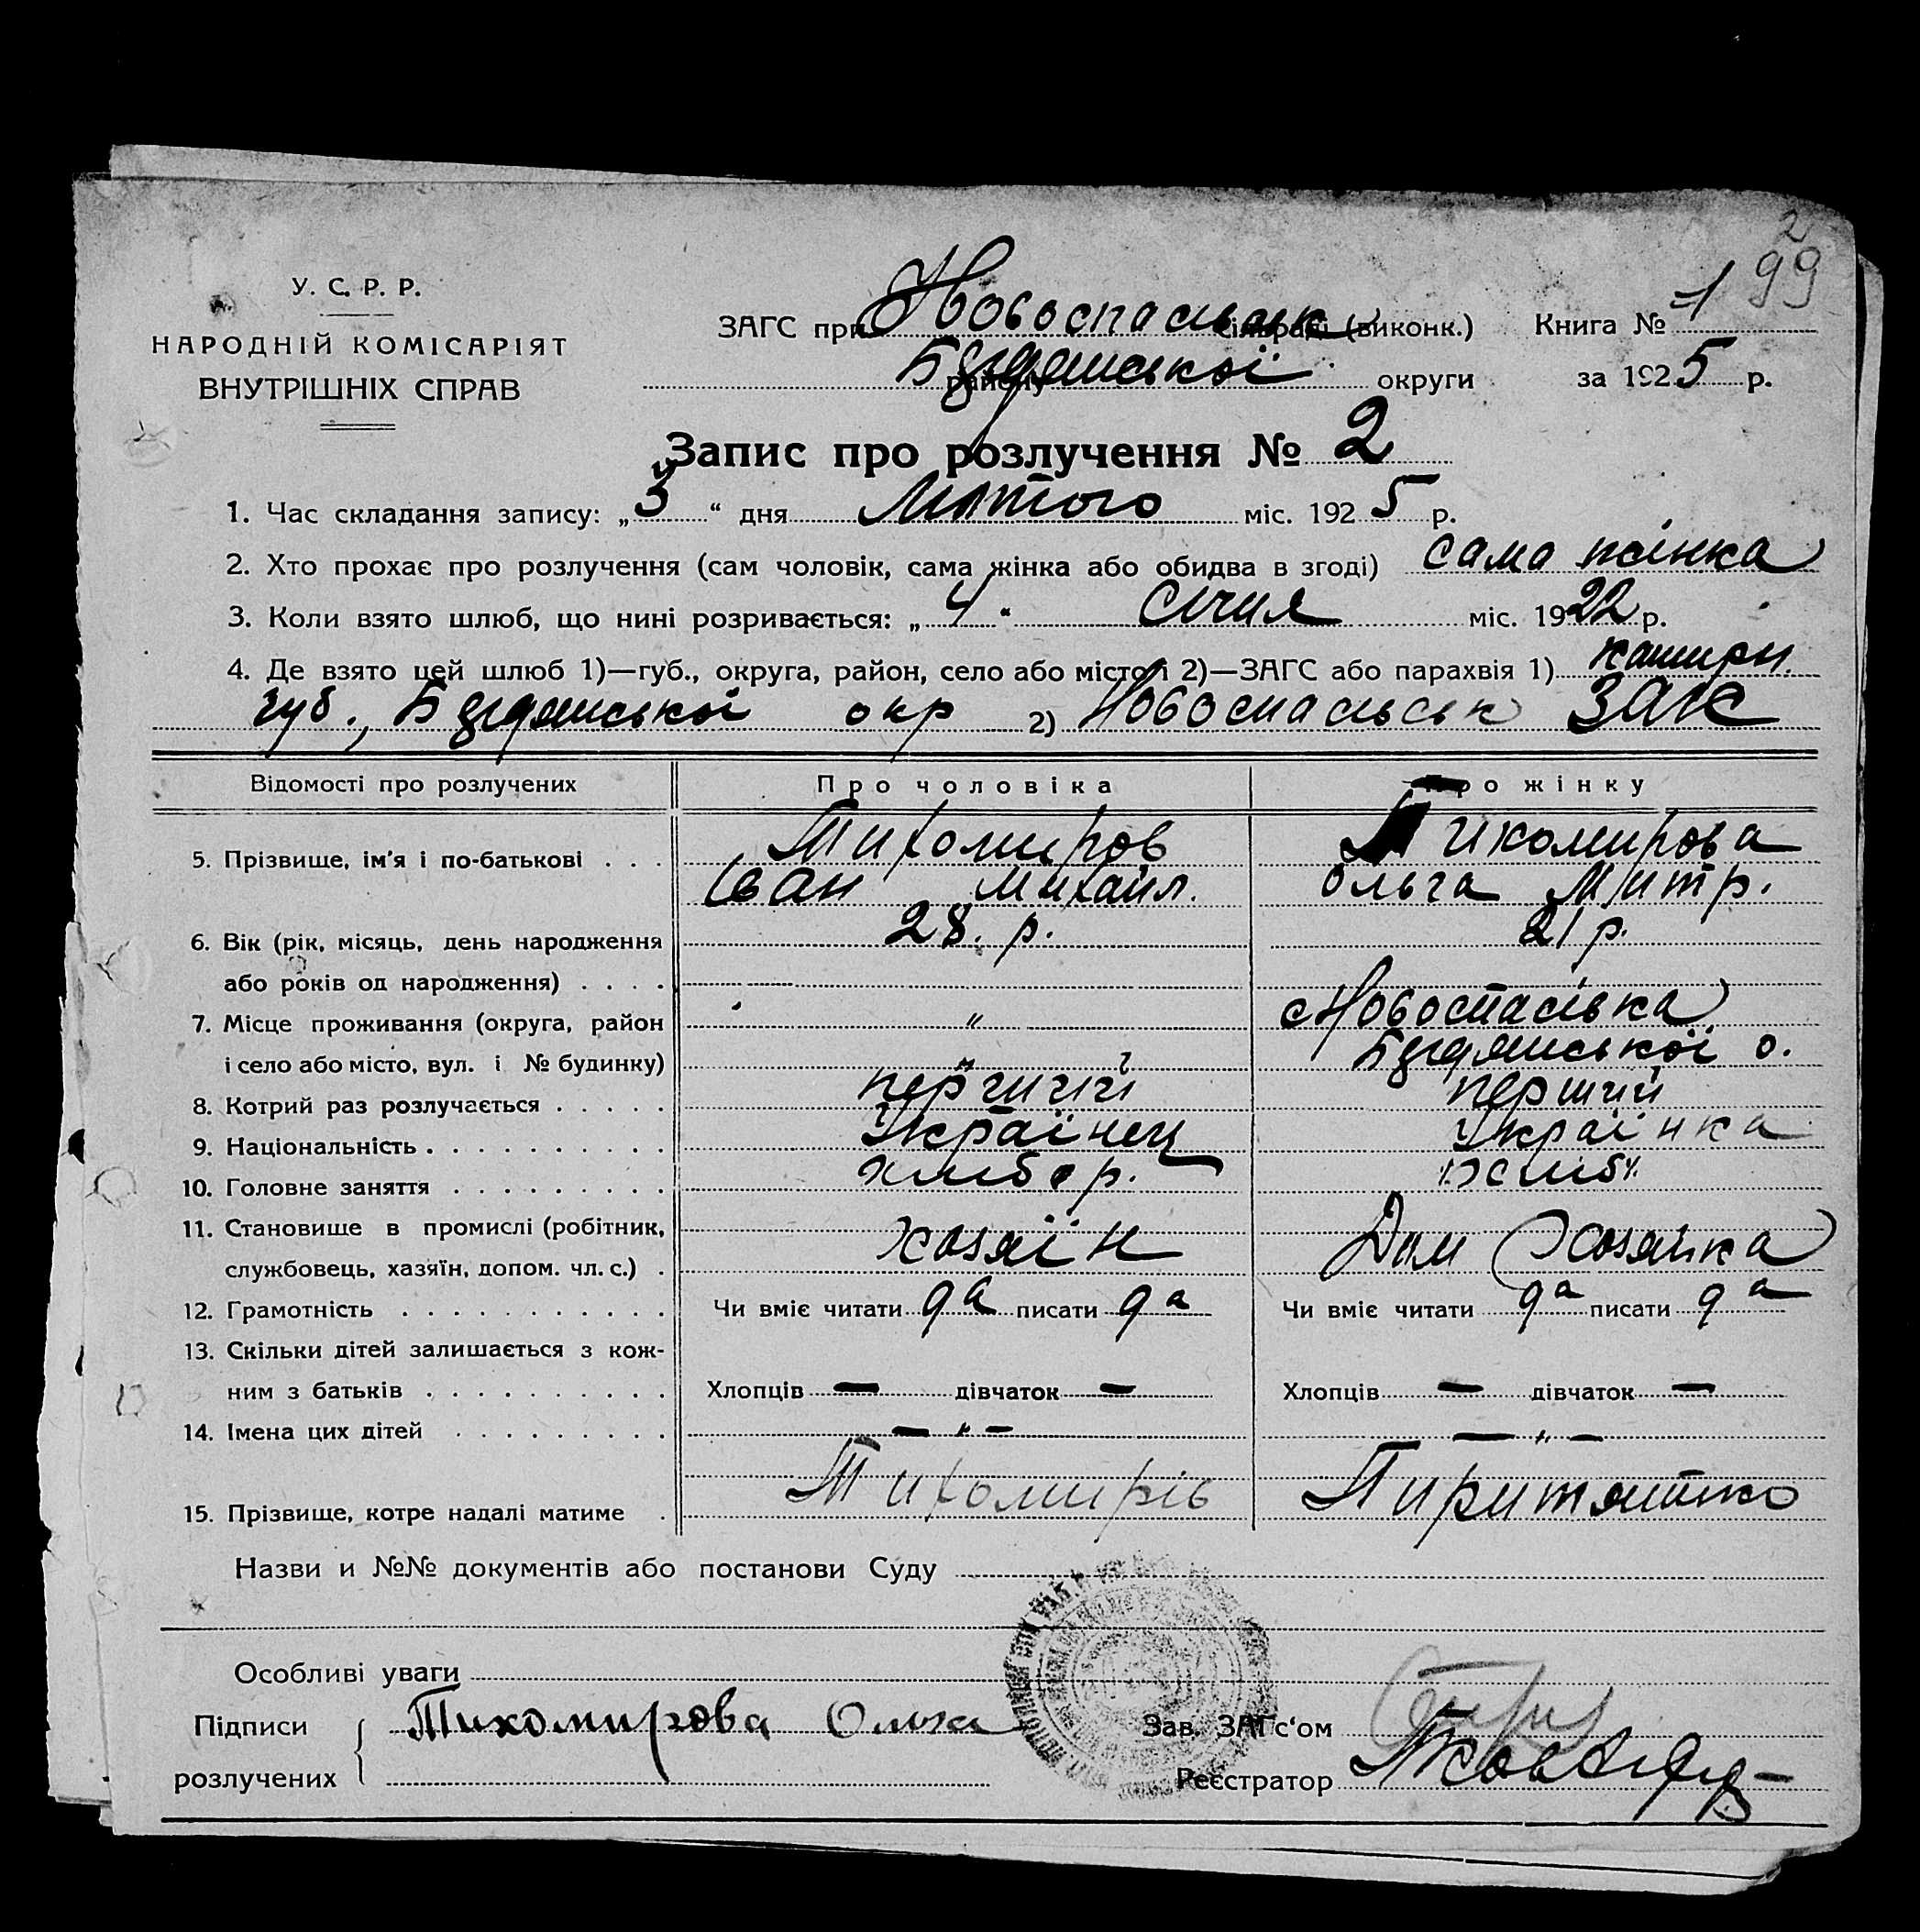 2
99
У. С. Р. Р.
НАРОДНІЙ КОМІСАРІЯТ
ВНУТРІШНІХ СПРАВ
ЗАГС при Новоспасівськ сільраді (виконк.) Книга № 1
району Бердянської округи за 1925 р.
Запис про розлучення № 2
1. Час складання запису: „3“ дня Лютого міс. 1925 р.
2. Хто прохає про розлучення (сам чоловік, сама жінка або обидва в згоді) сама жінка
3. Коли взято шлюб, що нині розривається: „4“ Січня міс. 1922 р.
4. Де взято цей шлюб 1)—губ., округа, район, село або місто і 2)—ЗАГС або парахвія 1)
губ., Бердянської окр 2) ЗАГС
Відомості про розлучених Про чоловіка Про жінку
5. Прізвище, ім'я і по-батькові . . . Тихомиров Тихомирова
Іван Михайл. Ольга Митр.
6. Вік (рік, місяць, день народження 28. р. 21 р.
або років од народження) . . . .
7. Місце проживання (округа, район „ с Новоспасівка
і село або місто, вул. і № будинку) Бердянської о.
8. Котрий раз розлучається . . . . . перший перший
9. Національність . . . . . . . . . . Українец Українка
10. Головне заняття . . . . . . . . . хлібор.
11. Становище в промислі (робітник,
службовець, хазяїн, допом. чл. с.) . хозяїн Дом Хозяйка
12. Грамотність . . . . . . . . . . . Чи вміє читати да писати да Чи вміє читати да писати да
13. Скільки дітей залишається з кож-
ним з батьків . . . . . . . . . . Хлопців — дівчаток — Хлопців — дівчаток —
14. Імена цих дітей . . . . . . . . . — „ — — „ —
15. Прізвище, котре надалі матиме . Тихомирів
Назви и №№ документів або постанови Суду
Особливі уваги
Підписи Тихомирова Ольга Зав. ЗАГс‘ом
розлучених Реєстратор